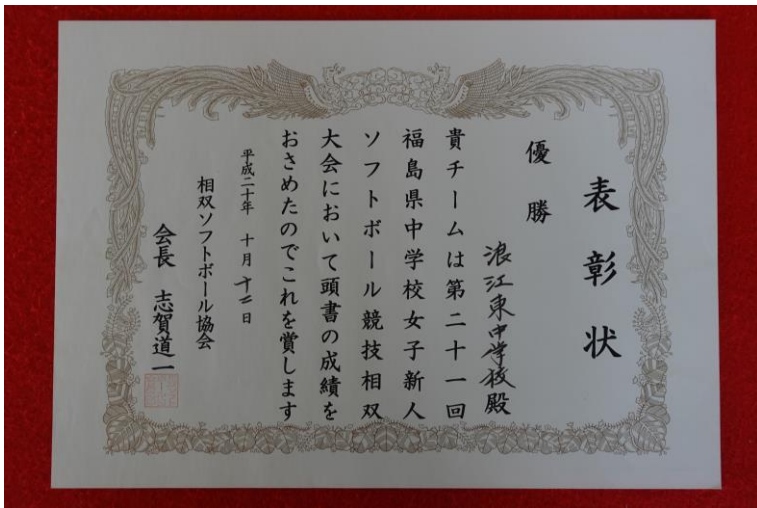 表彰状
優勝
浪江東中学校殿
貴チームは第二十一回
福島県中学校女子新人
ソフトボール競技相双
大会において頭書の成績を
おさめたのでこれを賞します
平成二十年 十月 十二日
相双ソフトボール協会
会長 志賀道一